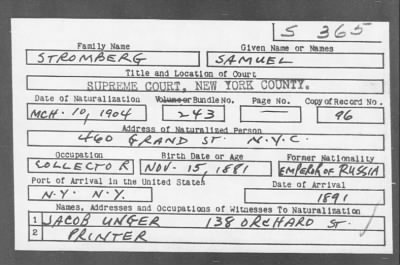 S 365
Family Name Given Name or Names
STROMBERG SAMUEL
Title and Location of Court
SUPREME COURT, NEW YORK COUNTY.
Date of Naturalization Volume or Bundle No. Page No. Copy of Record No.
MCH. 10, 1904 243 — 96
Address of Naturalized Person
460 GRAND ST. N.Y.C.
Occupation Birth Date or Age Former Nationality
COLLECTOR NOV. 15, 1881 EMPEROR OF RUSSIA
Port of Arrival in the United States Date of Arrival
N.Y. N.Y. 1891
Names, Addresses and Occupations of Witnesses To Naturalization
1 JACOB UNGER 138 ORCHARD ST.
2 PRINTER